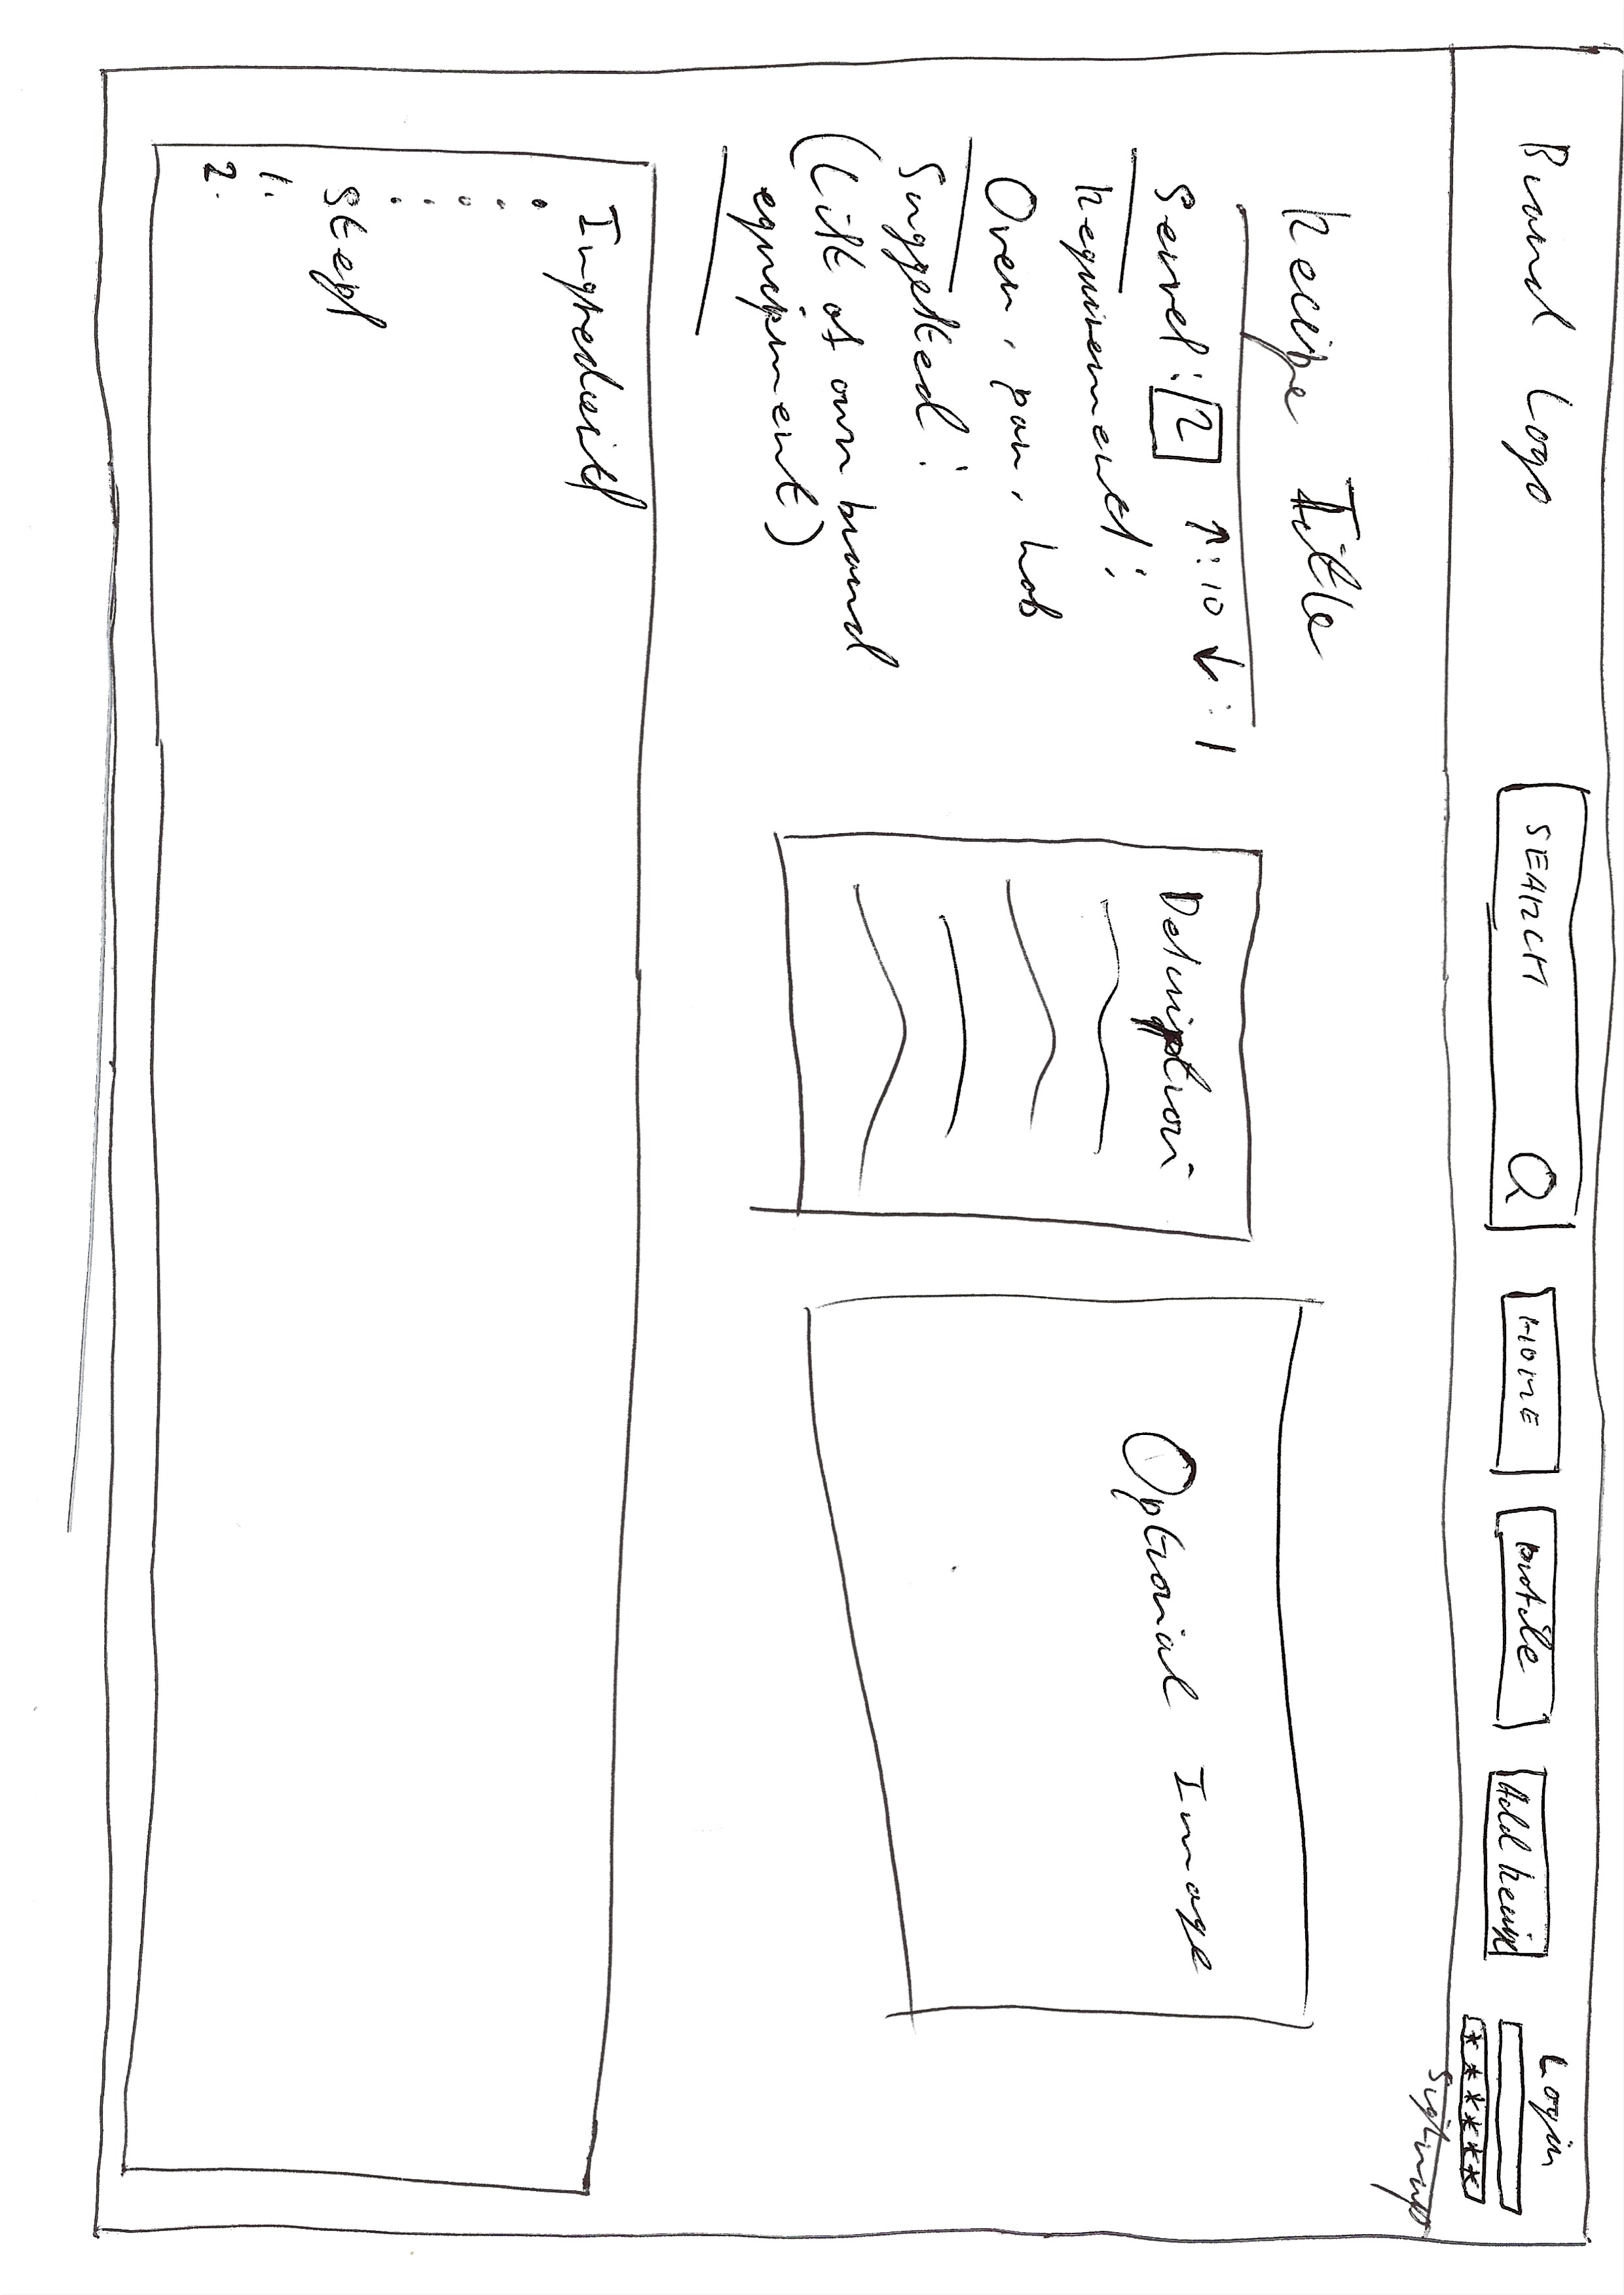 Brand Logo
SEARCH
HOME
Profile
Add Recipe
Login
******
Sign up
Recipe Title
Serves: 2 ↑: 10 ↓: 1
Requirements:
Oven, pan, hob
Suggested:
(List of own brand
equipment)
Description
Optional Image
Ingredients
Steps
1.
2.